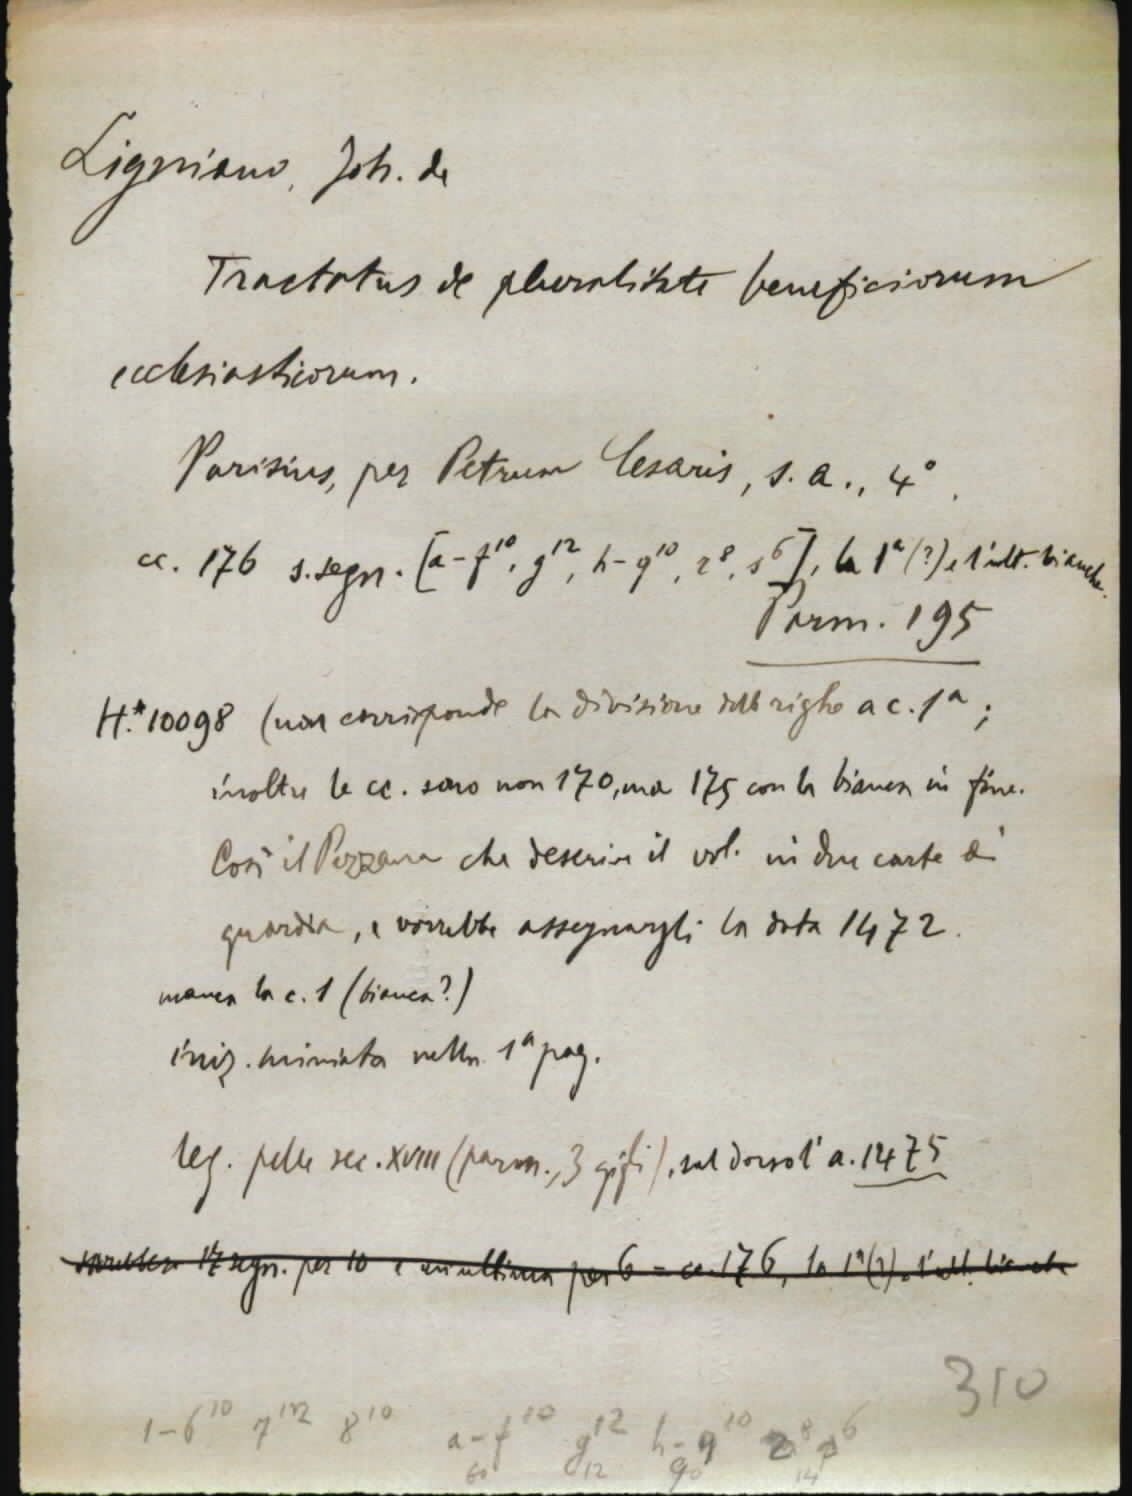 Lignano, Joh. de
Tractatus de pluralitate beneficiorum
ecclesiasticorum.
Parisius, per Petrum Cesaris, s. a., 4°.
cc. 176 s. segn. [a-f¹⁰, g¹², h-q¹⁰, r⁸, s⁶], la 1ª (?) e l'ult. bianche.
Parm. 195
H.* 10098 (non corrisponde la divisione delle righe a c. 1ª;
inoltre le cc. sono non 170, ma 175 con la bianca in fine.
Così il Pezzana che descrive il vol. in due carte di
guardia, e vorrebbe assegnargli la data 1472.
manca la c. 1 (bianca?)
iniz. miniata nella 1ª pag.
leg. pelle sec. XVIII (parm., 3 gigli), sul dorso l'a. 1475
sarebbero 17 segn. per 10 e un'ultima per 6 = cc. 176, la 1ª (?) e l'ult. bianche
310
1-6¹⁰ 7¹² 8¹⁰ a-f¹⁰ g¹² h-q¹⁰ r⁸ s⁶
60 12 90 14